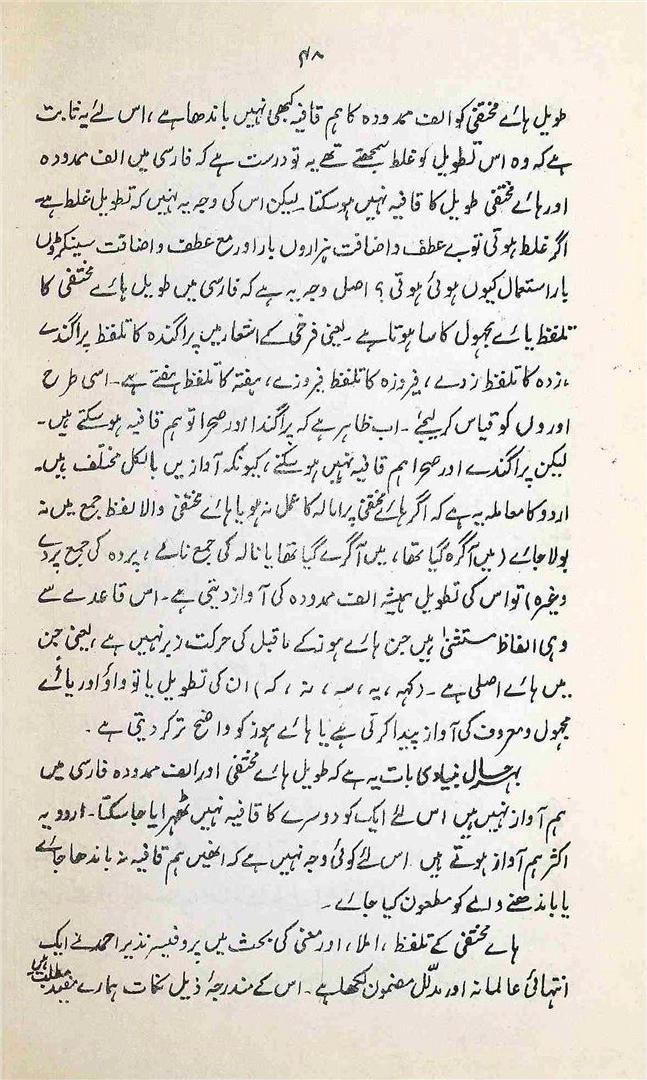 ۴۸
طویل ہائے مختفی کو الف ممدودہ کا ہم قافیہ کبھی نہیں باندھا ہے، اس لئے یہ ثابت
ہے کہ وہ اس تطویل کو غلط سمجھتے تھے یہ تو درست ہے کہ فارسی میں الف ممدودہ
اور ہائے مختفی طویل کا قافیہ نہیں ہو سکتا۔ لیکن اس کی وجہ یہ نہیں کہ تطویل غلط ہے۔
اگر غلط ہوتی تو بے عطف و اضافت ہزاروں بار اور مع عطف و اضافت سینکڑوں
بار استعمال کیوں ہوئی ہوتی؟ اصل وجہ یہ ہے کہ فارسی میں طویل ہائے مختفی کا
تلفظ یائے مجہول کا سا ہوتا ہے۔ یعنی فرخی کے اشعار میں پراگندہ کا تلفظ پراگندے
،زدہ کا تلفظ زدے، فیروزہ کا تلفظ فیروزے، ہفتہ کا تلفظ ہفتے ہے۔ اسی طرح
اوروں کو قیاس کر لیجئے۔ اب ظاہر ہے کہ پراگندا اور صحرا تو ہم قافیہ ہو سکتے ہیں۔
لیکن پراگندے اور صحرا ہم قافیہ نہیں ہو سکتے، کیونکہ آوازیں بالکل مختلف ہیں۔
اردو کا معاملہ یہ ہے کہ اگر ہائے مختفی پر امالہ کا عمل نہ ہو یا ہائے مختفی والا لفظ جمع میں نہ
بولا جائے (میں آگرہ گیا تھا، میں آگرے گیا تھا یا نالہ کی جمع نالے، پردہ کی جمع پردے
وغیرہ) تو اس کی تطویل ہمیشہ الف ممدودہ کی آواز دیتی ہے۔ اس قاعدے سے
وہی الفاظ مستثنیٰ ہیں جن ہائے ہوز کے ماقبل کی حرکت زیر نہیں ہے، یعنی جن
میں ہائے اصلی ہے۔ (کہہ، یہ، سہ، نہ، کہ) ان کی تطویل یا تو واؤ اور یائے
مجہول و معروف کی آواز پیدا کرتی ہے یا ہائے ہوز کو واضح تر کر دیتی ہے۔
بہر حال بنیادی بات یہ ہے کہ طویل ہائے مختفی اور الف ممدودہ فارسی میں
ہم آواز نہیں ہیں اس لئے ایک کو دوسرے کا قافیہ نہیں ٹھہرایا جا سکتا۔ اردو یہ
اکثر ہم آواز ہوتے ہیں اس لئے کوئی وجہ نہیں ہے کہ انھیں ہم قافیہ نہ باندھا جائے
یا باندھنے والے کو مطعون کیا جائے۔
ہائے مختفی کے تلفظ، املا، اور معنی کی بحث میں پروفیسر نذیر احمد نے ایک
انتہائی عالمانہ اور مدلّل مضمون لکھا ہے۔ اس کے مندرجۂ ذیل نکات ہمارے مفید مطلب ہیں